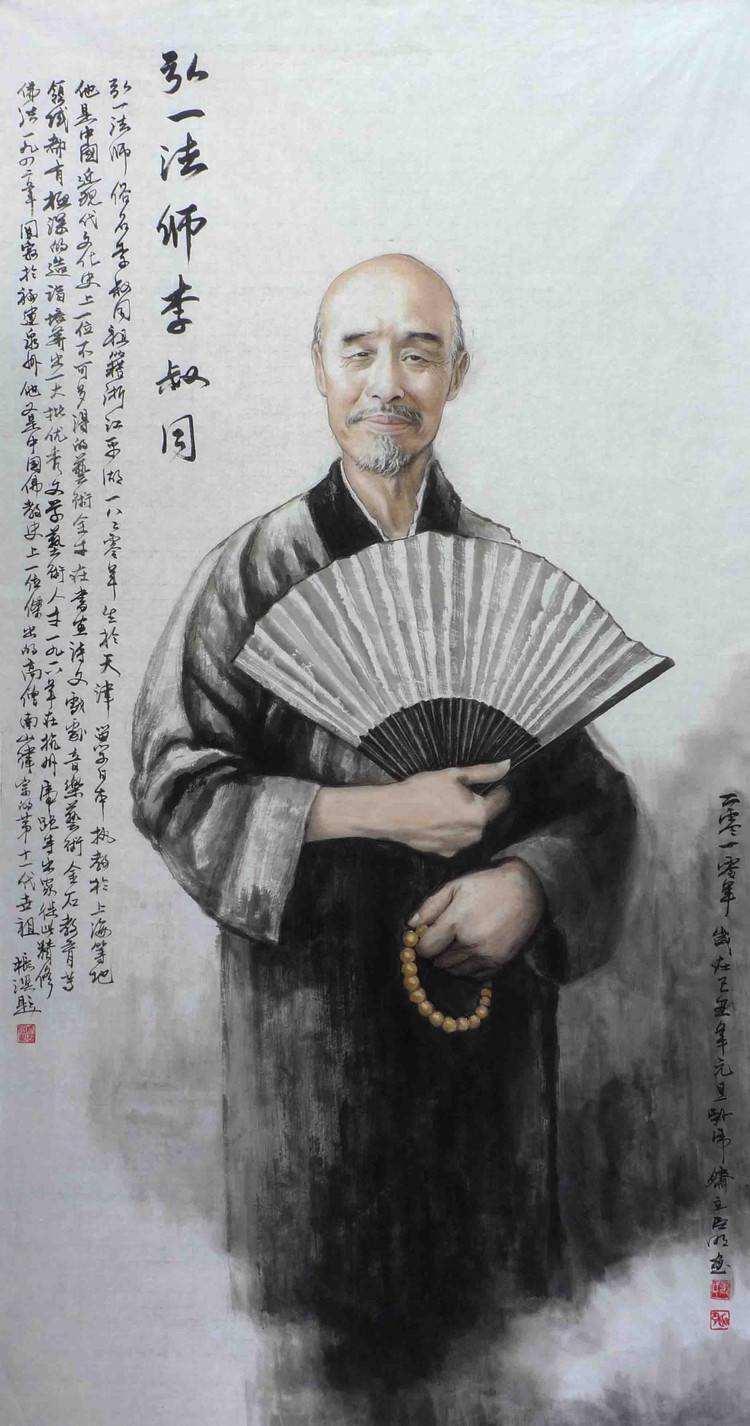 弘一法师李叔同
弘一法师俗名李叔同祖籍浙江平湖一八八零年生於天津留学日本执教於上海等地
他是中國近现代文化史上一位不可多得的藝術全才在書画诗文戏劇音樂藝術金石教育等
領域都有極深的造詣培养出一大批优秀文学藝術人才一九一八年在杭州虎跑寺出家從此精修
佛法一九四二年圆寂於福建泉州他是中国佛教史上一位傑出的高僧南山律宗的第十一代世祖 振
二零一零年歲在己丑年元旦卧佛齋主